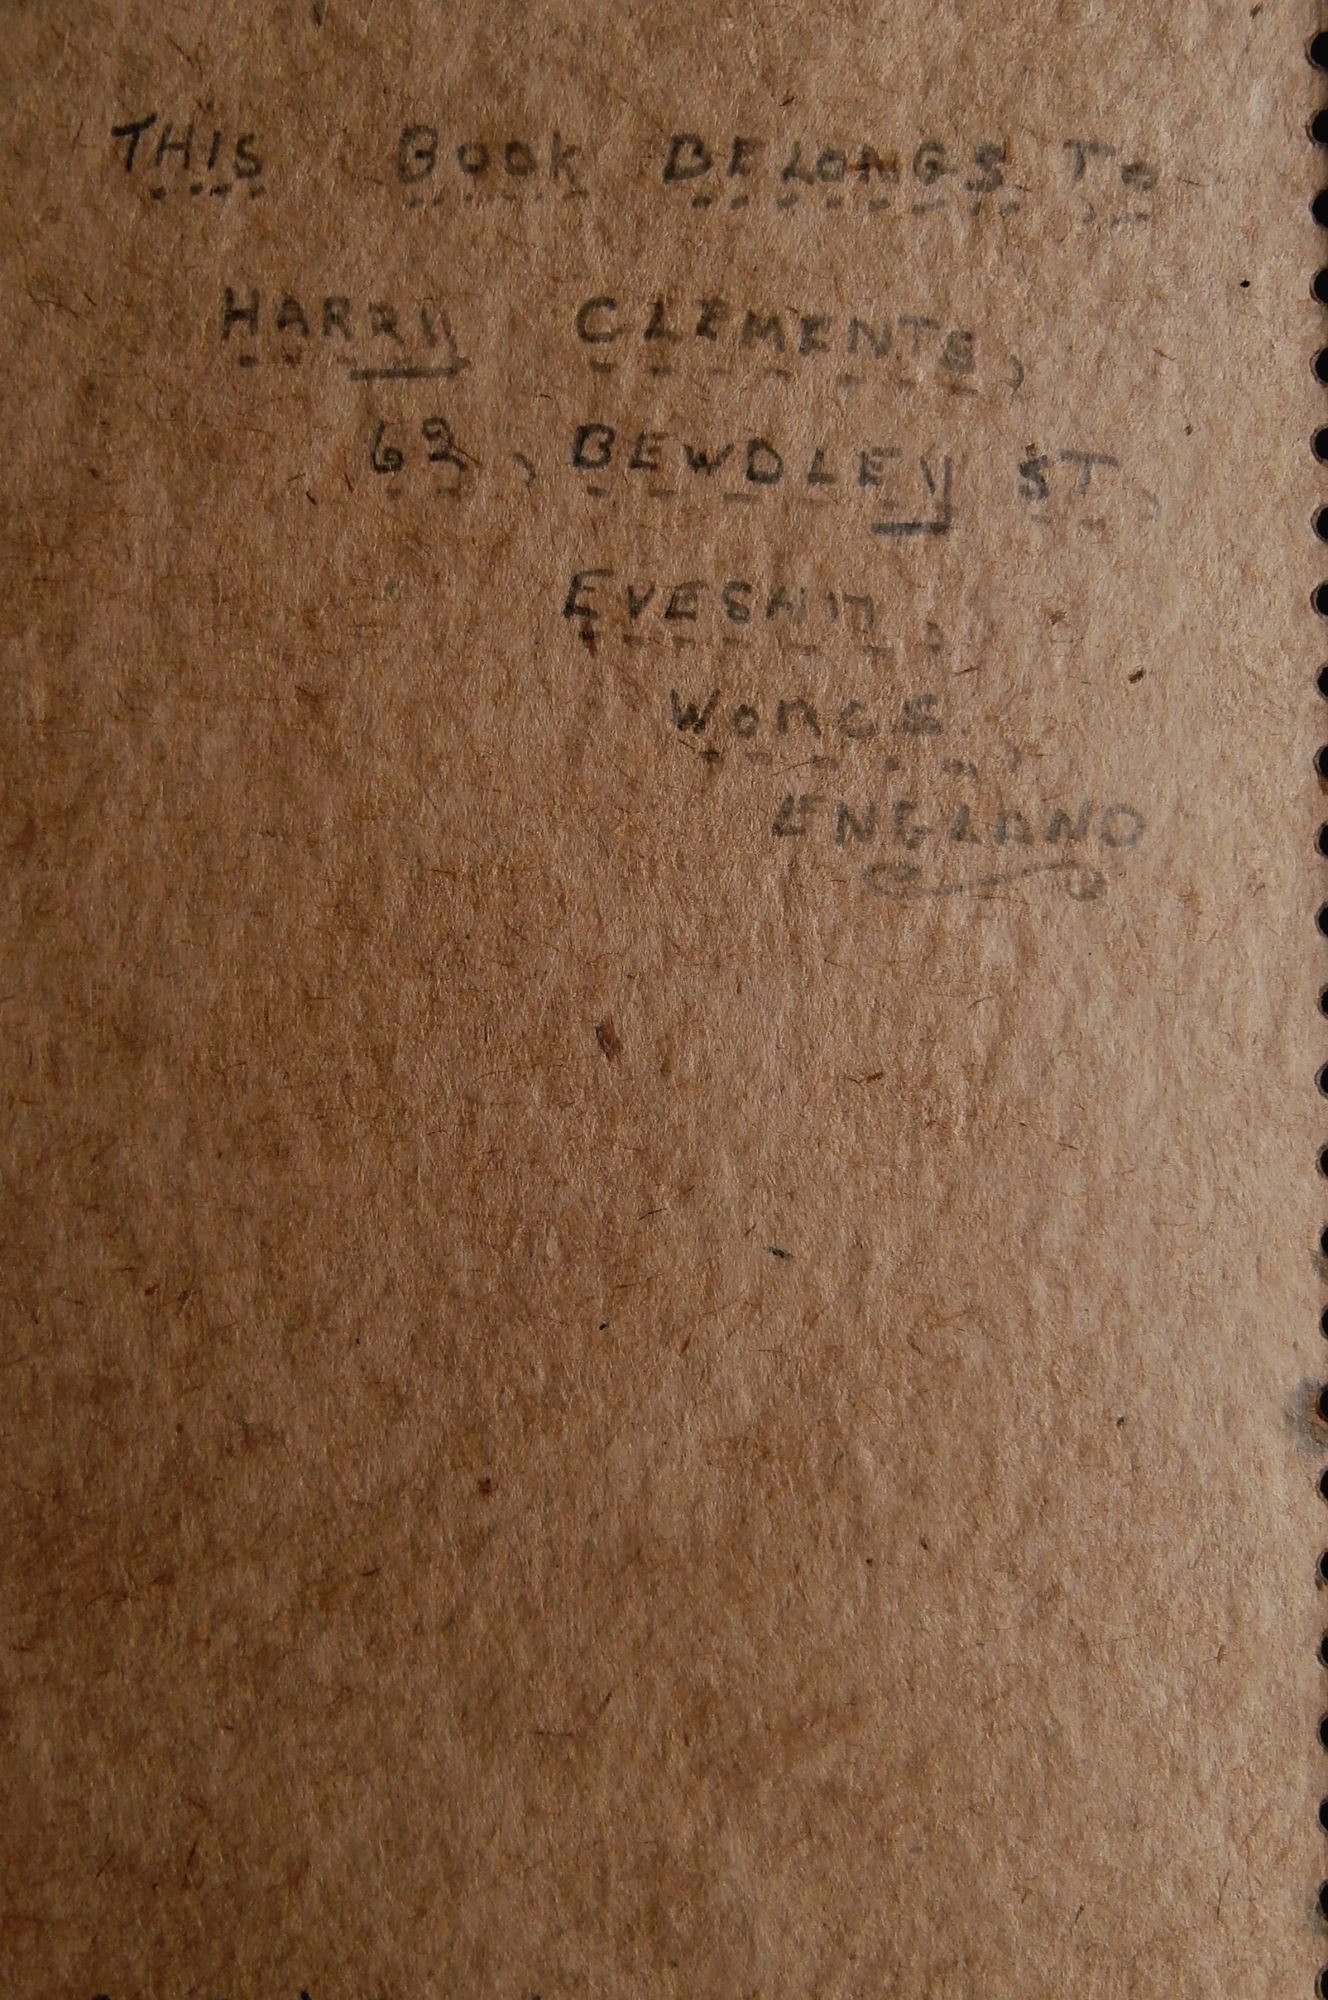 THIS BOOK BELONGS TO
HARRY CLEMENTS,
62, BEWDLEY ST,
EVESHM,
WORCS.,
ENGLAND